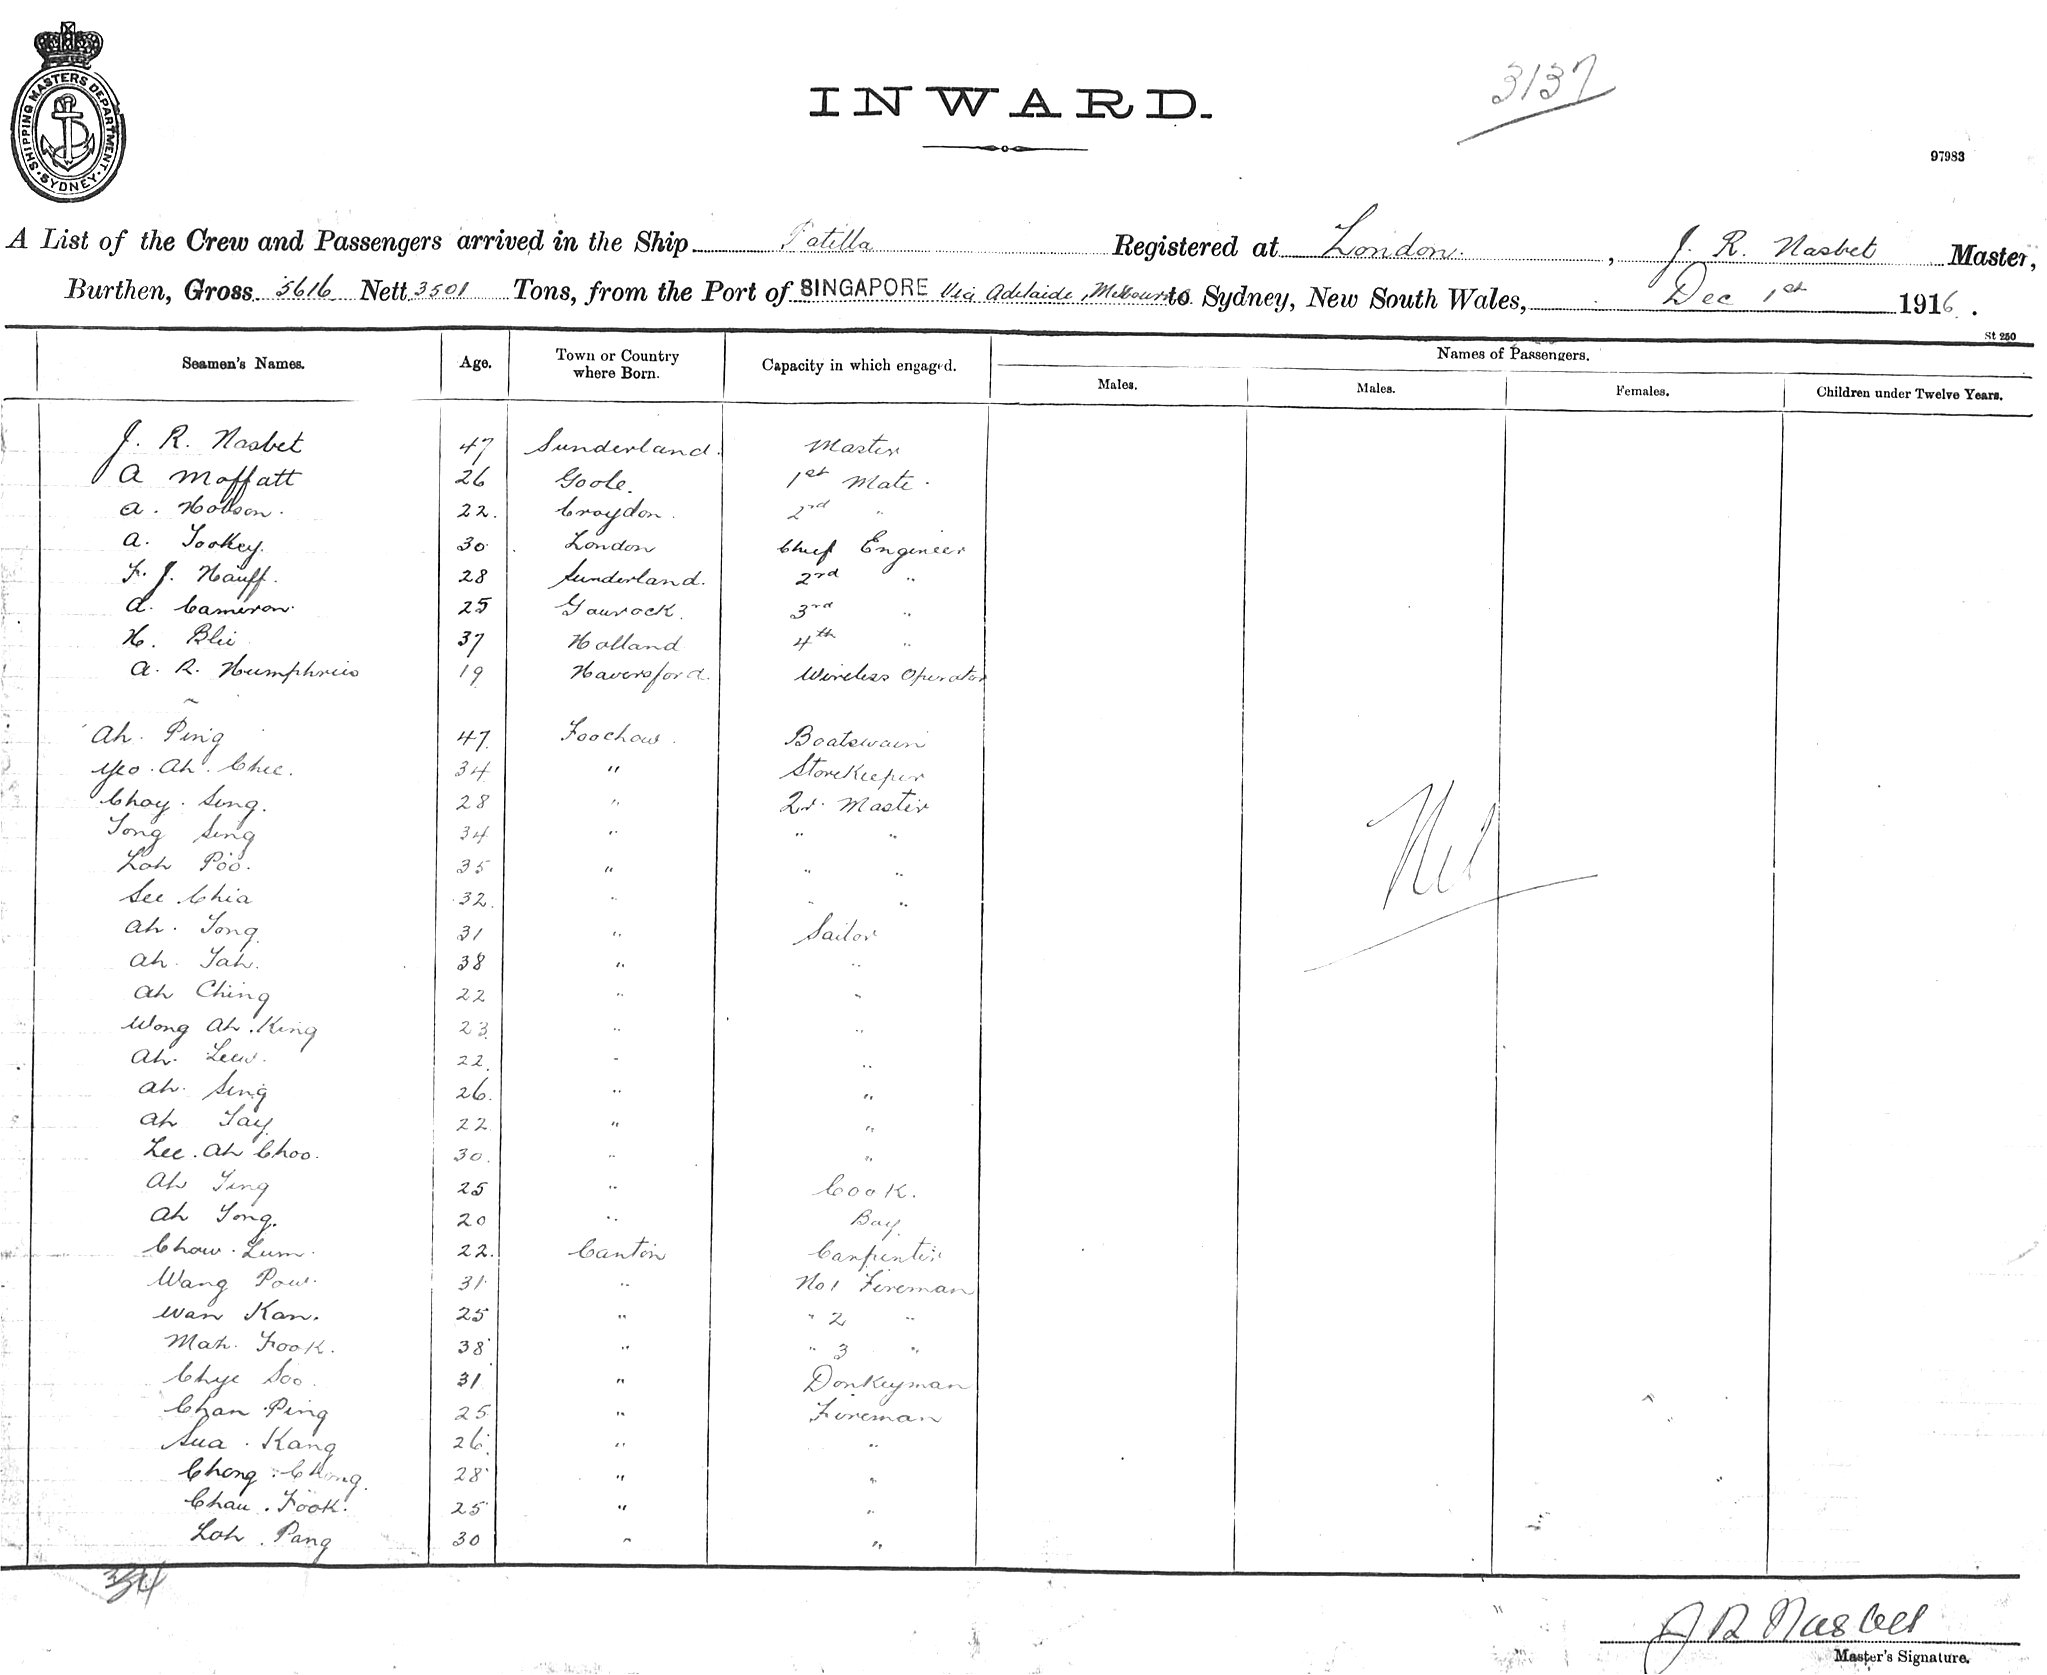 SHIPPING MASTERS DEPARTMENT. SYDNEY.
INWARD.
3137
97983
A List of the Crew and Passengers arrived in the Ship Patilla Registered at London. , J. R. Nasbet Master,
Burthen, Gross 5616 Nett 3501 Tons, from the Port of SINGAPORE Via Adelaide, Melbourne to Sydney, New South Wales, Dec 1st 1916.
St 250
Seamen's Names. Age. Town or Country where Born. Capacity in which engaged. Names of Passengers.
Males. Males. Females. Children under Twelve Years.
J. R. Nasbet 47 Sunderland. Master
A Moffatt 26 Goole. 1st Mate.
A. Hobson. 22. Croydon. 2nd "
A. Tookey. 30 London Chief Engineer
F. J. Hauff. 28 Sunderland. 2nd "
A. Cameron. 25 Gaurock. 3rd "
H. Blii 37 Holland 4th "
A. R. Humphries 19 Haversford. Wireless Operator
Ah. Ping 47. Foochow. Boatswain
Yeo. Ah. Chee. 34 " Storekeeper
Choy. Seng. 28 " Qr. Master
Tong Seng 34 " " "
Loh Poo. 35 " " "
See Chia 32. " " "
Ah. Tong. 31 " Sailor
Ah. Tah. 38 " "
Ah Ching 22 " "
Wong Ah. King 23 " "
Ah. Leew. 22. " "
Ah. Seng 26. " "
Ah Tay 22 " "
Lee. Ah Choo. 30. " "
Ah Ting 25 " Cook.
Ah Tong. 20 " Boy
Chow. Lum. 22. Canton Carpenter
Wang Pow. 31 " No 1 Fireman
Wan Kan. 25 " " 2 "
Mah. Fook. 38 " " 3 "
Chye Soo. 31 " Donkeyman
Chan Ping 25 " Fireman
Sua. Kang 26 " "
Chong. Chong. 28 " "
Chau. Fook. 25 " "
Loh. Pang 30 " "
Nil
34
J R Nasbet
Master's Signature.